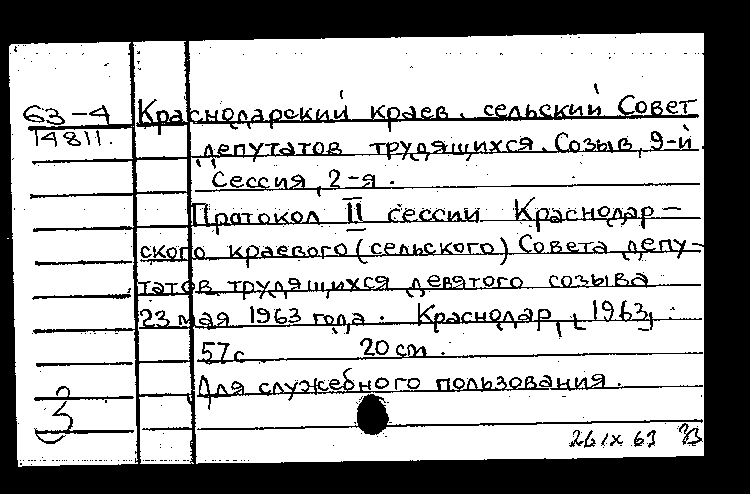 63-4 Краснодарский краев. сельский Совет
14811. депутатов трудящихся. Созыв, 9-й.
Сессия, 2-я.
Протокол II сессии Краснодар-
ского краевого (сельского) Совета депу-
татов трудящихся девятого созыва
23 мая 1963 года. Краснодар, [1963].
57с 20 см.
Для служебного пользования.
З
26 IX 63